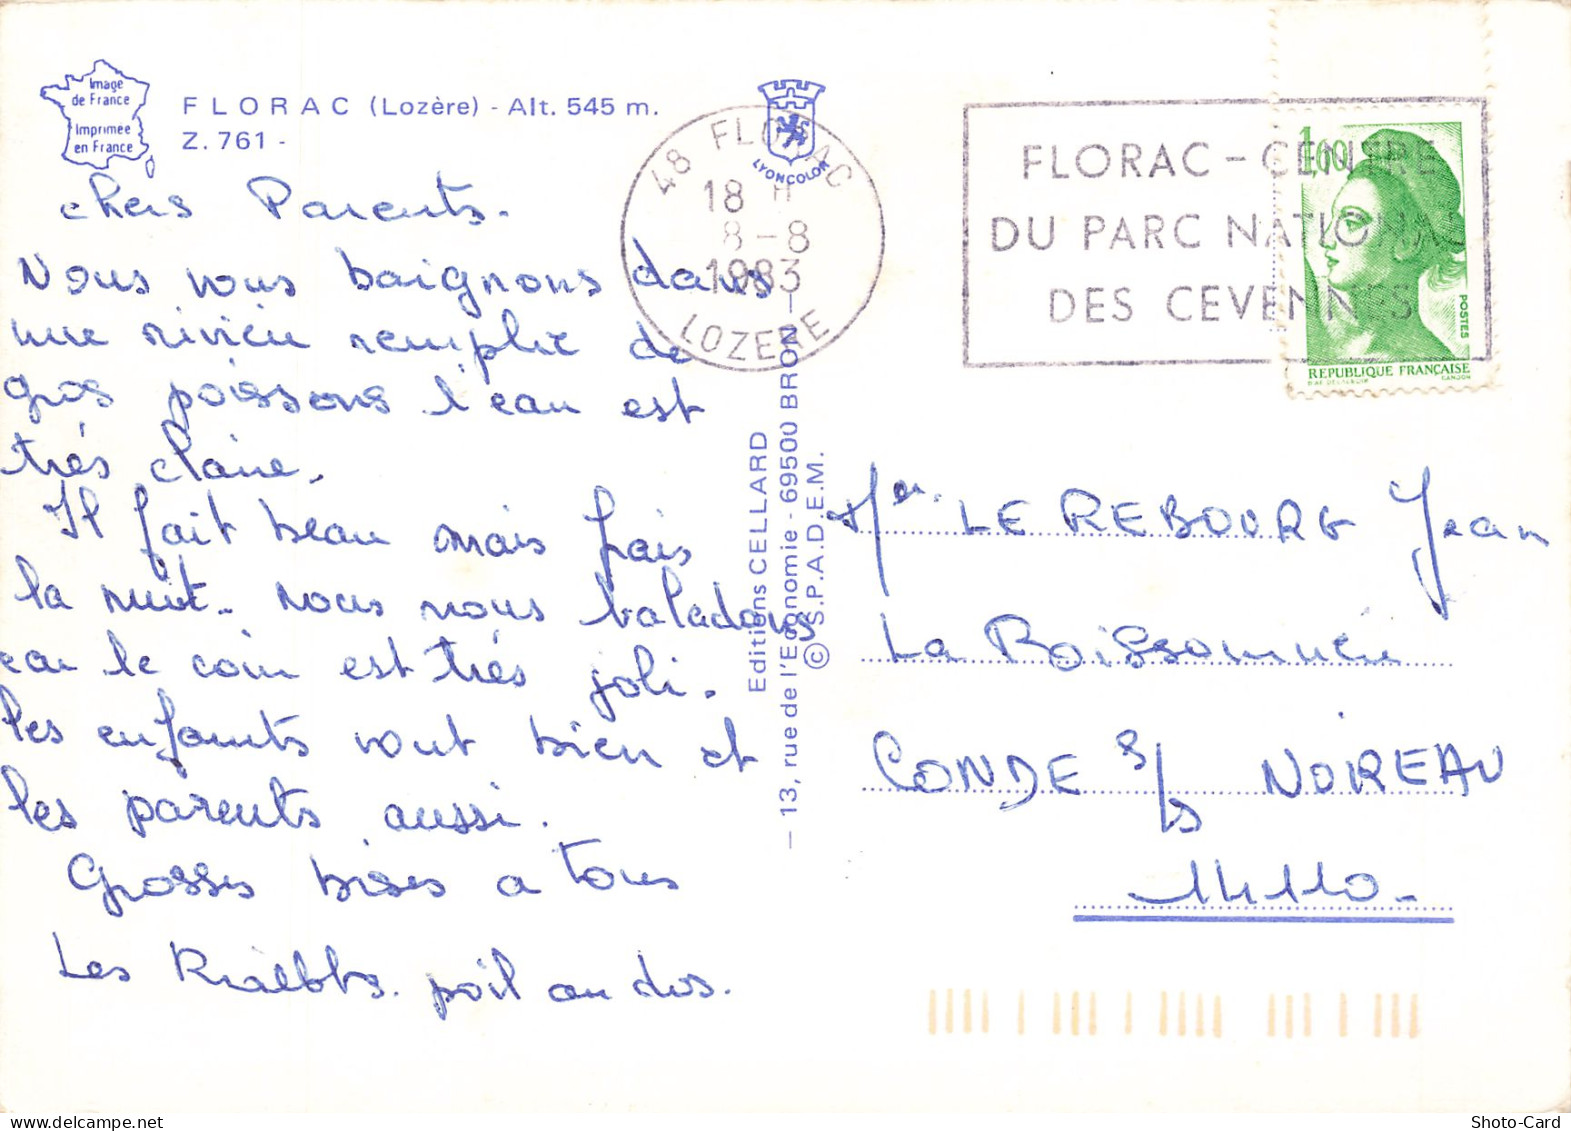 Image
de France
Imprimée
en France
FLORAC (Lozère) - Alt. 545 m.
Z. 761 -
LYONCOLOR
chers Parents.
Nous nous baignons dans
une rivière remplie de
gros poissons l'eau est
très claire.
Il fait beau mais frais
la nuit. nous nous baladons
car le coin est très joli.
les enfants vont bien et
les parents aussi.
Grosses bises a tous
Les poil au dos.
Editions CELLARD
— 13, rue de l'Economie - 69500 BRON —
© S.P.A.D.E.M.
48 FLORAC
18 H
8-8
1983
LOZERE
FLORAC - CENTRE
DU PARC NATIONAL
DES CEVENNES
1,60
POSTES
REPUBLIQUE FRANÇAISE
D'AP. DELACROIX GANDON
LE REBOURG Jean
La Boissonnière
CONDE s/s NOIREAU
14110.
Shoto-Card